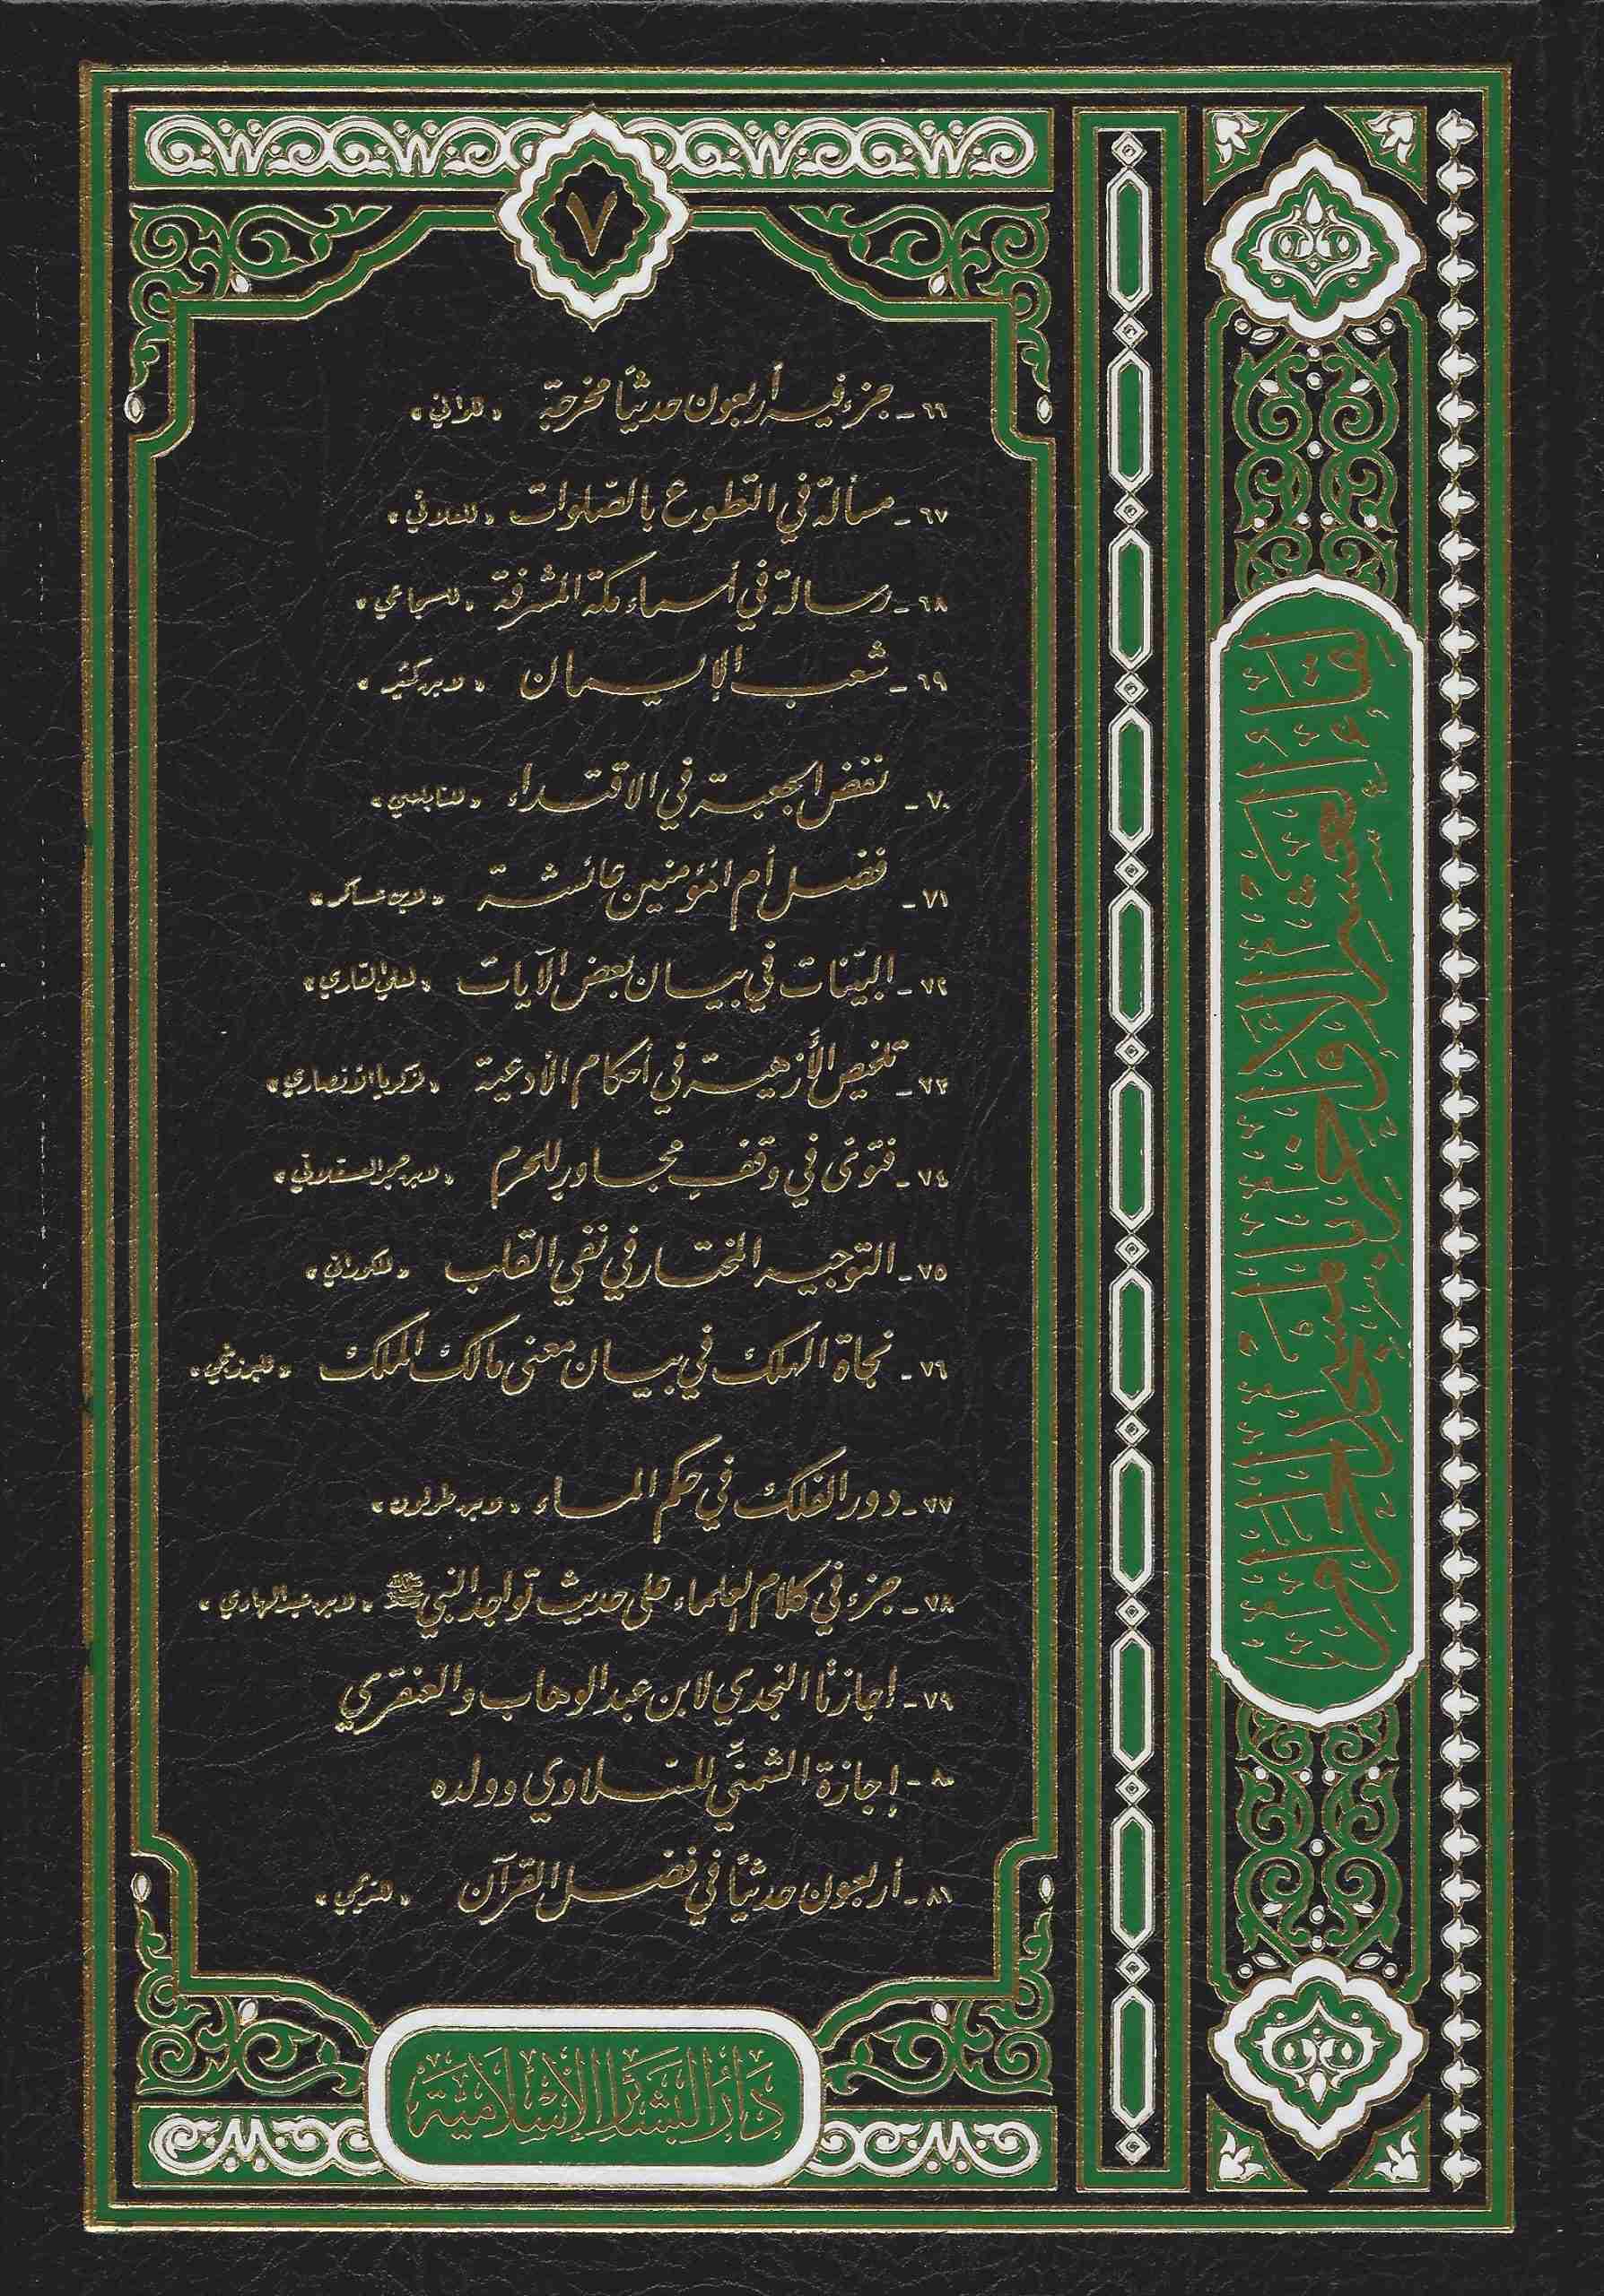 ٧
٦٦ - جزء فيه أربعون حديثاً مخرجة
٦٧ - مسألة في التطوع بالصلوات « للعلائي »
٦٨ - رسالة في أسماء مكة المشرفة
٦٩ - شعب الإيمان « لابن كثير »
٧٠ - نفض الجعبة في الاقتداء « للنابلسي »
٧١ - فضل أم المؤمنين عائشة « لابن عساكر »
٧٢ - البيّنات في بيان بعض الآيات « لعلي القاري »
٧٣ - تلخيص الأزهية في أحكام الأدعية « لزكريا الأنصاري »
٧٤ - فتوى في وقف مجاور للحرم « لابن حجر العسقلاني »
٧٥ - التوجيه المختار في نفي القلب « للكوراني »
٧٦ - نجاة الهلك في بيان معنى مالك الملك « للبرزنجي »
٧٧ - دور الفلك في حكم الماء « لابن طولون »
٧٨ - جزء في كلام العلماء على حديث تواجد النبي ﷺ « لابن عبد الهادي »
٧٩ - إجازتا النجدي لابن عبد الوهاب والعنقري
٨٠ - إجازة الشمنّي للسلاوي وولده
٨١ - أربعون حديثاً في فضل القرآن
دار البشائر الإسلامية
لقاء العشر الأواخر بالمسجد الحرام